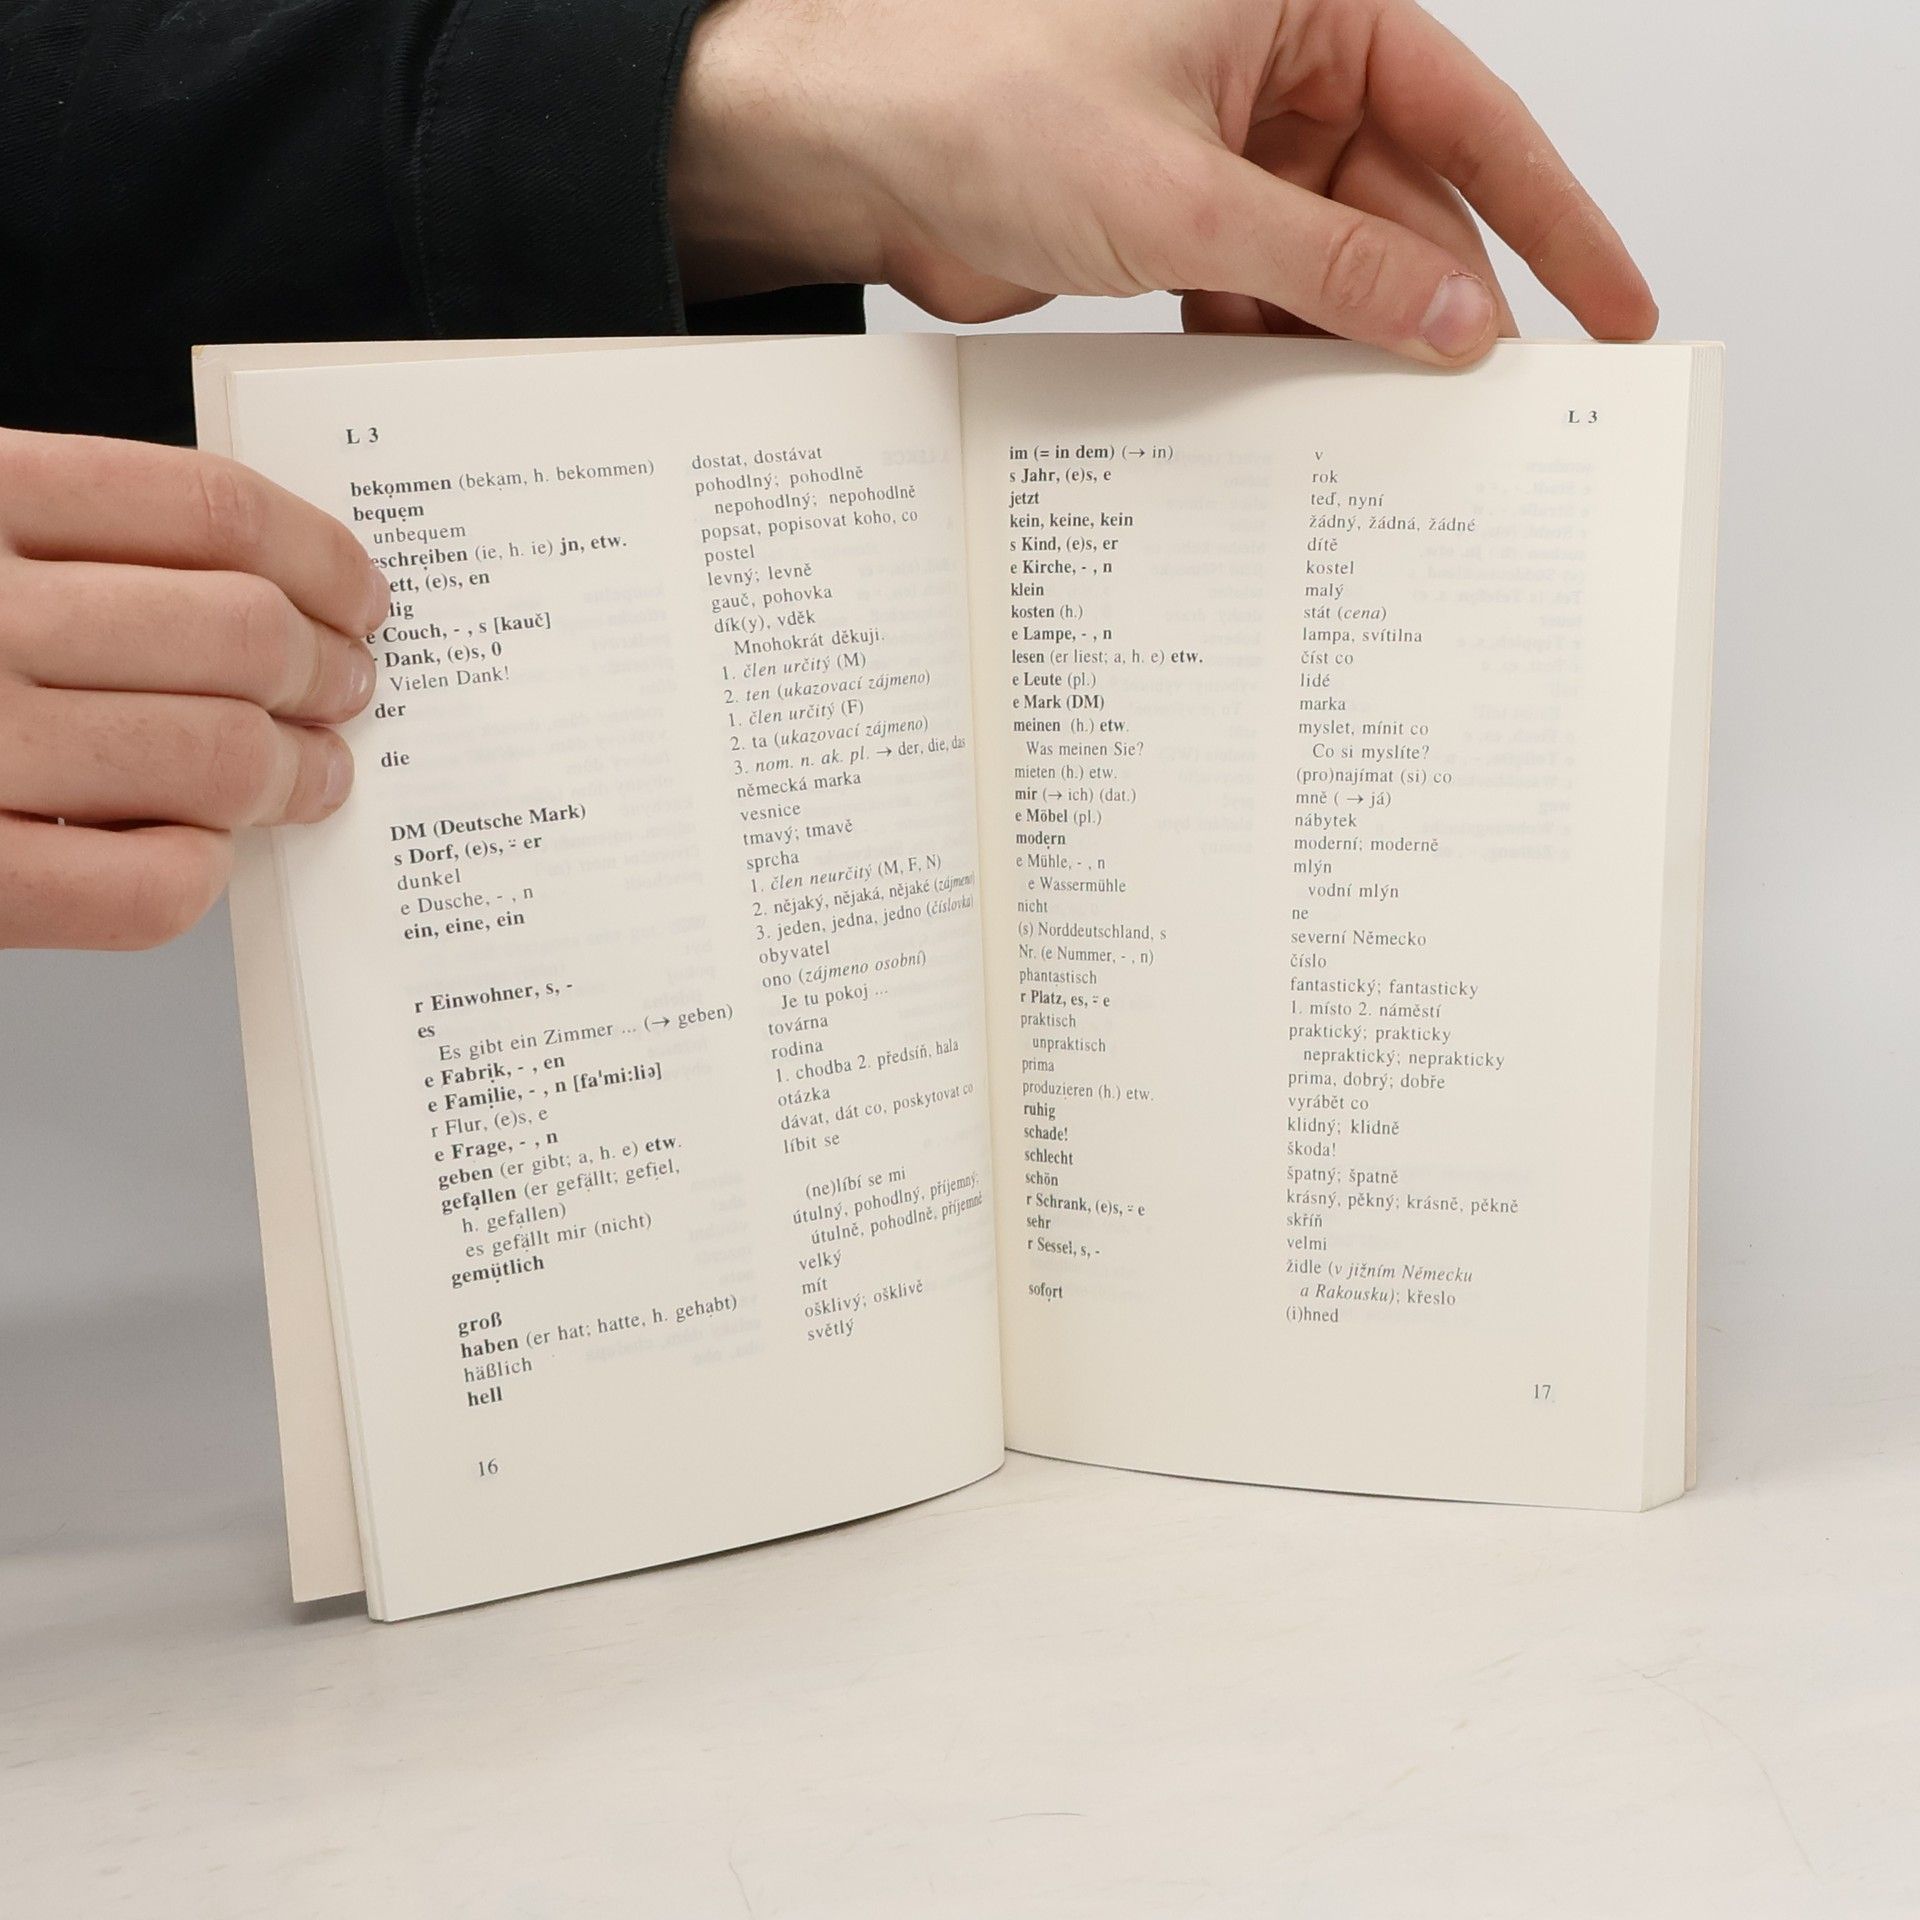 L 3
bekommen (bekam, h. bekommen) dostat, dostávat
bequem pohodlný; pohodlně
unbequem nepohodlný; nepohodlně
eschreiben (ie, h. ie) jn, etw. popsat, popisovat koho, co
ett, (e)s, en postel
lig levný; levně
e Couch, - , s [kauč] gauč, pohovka
r Dank, (e)s, 0 dík(y), vděk
Vielen Dank! Mnohokrát děkuji.
der 1. člen určitý (M)
2. ten (ukazovací zájmeno)
die 1. člen určitý (F)
2. ta (ukazovací zájmeno)
3. nom. n. ak. pl. → der, die, das
DM (Deutsche Mark) německá marka
s Dorf, (e)s, ⸚ er vesnice
dunkel tmavý; tmavě
e Dusche, - , n sprcha
ein, eine, ein 1. člen neurčitý (M, F, N)
2. nějaký, nějaká, nějaké (zájmeno)
3. jeden, jedna, jedno (číslovka)
r Einwohner, s, - obyvatel
es ono (zájmeno osobní)
Es gibt ein Zimmer ... (→ geben) Je tu pokoj ...
e Fabrik, - , en továrna
e Familie, - , n [fa'mi:liə] rodina
r Flur, (e)s, e 1. chodba 2. předsíň, hala
e Frage, - , n otázka
geben (er gibt; a, h. e) etw. dávat, dát co, poskytovat co
gefallen (er gefällt; gefiel, líbit se
h. gefallen)
es gefällt mir (nicht) (ne)líbí se mi
gemütlich útulný, pohodlný, příjemný;
útulně, pohodlně, příjemně
groß velký
haben (er hat; hatte, h. gehabt) mít
häßlich ošklivý; ošklivě
hell světlý
16
L 3
im (= in dem) (→ in) v
s Jahr, (e)s, e rok
jetzt teď, nyní
kein, keine, kein žádný, žádná, žádné
s Kind, (e)s, er dítě
e Kirche, - , n kostel
klein malý
kosten (h.) stát (cena)
e Lampe, - , n lampa, svítilna
lesen (er liest; a, h. e) etw. číst co
e Leute (pl.) lidé
e Mark (DM) marka
meinen (h.) etw. myslet, mínit co
Was meinen Sie? Co si myslíte?
mieten (h.) etw. (pro)najímat (si) co
mir (→ ich) (dat.) mně ( → já)
e Möbel (pl.) nábytek
modern moderní; moderně
e Mühle, - , n mlýn
e Wassermühle vodní mlýn
nicht ne
(s) Norddeutschland, s severní Německo
Nr. (e Nummer, - , n) číslo
phantastisch fantastický; fantasticky
r Platz, es, ⸚ e 1. místo 2. náměstí
praktisch praktický; prakticky
unpraktisch nepraktický; neprakticky
prima prima, dobrý; dobře
produzieren (h.) etw. vyrábět co
ruhig klidný; klidně
schade! škoda!
schlecht špatný; špatně
schön krásný, pěkný; krásně, pěkně
r Schrank, (e)s, ⸚ e skříň
sehr velmi
r Sessel, s, - židle (v jižním Německu
a Rakousku); křeslo
sofort (i)hned
17